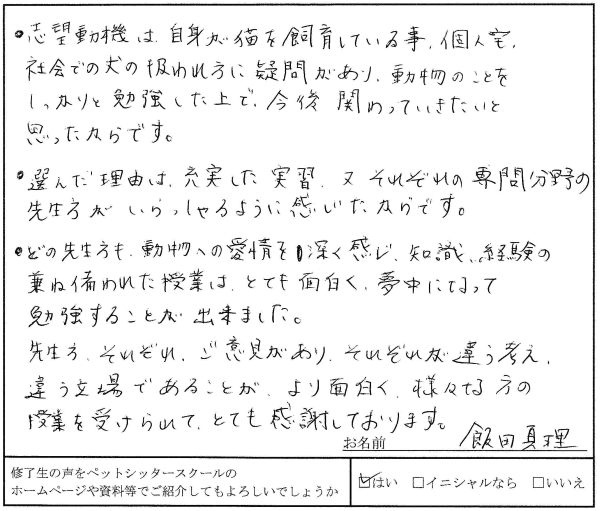 ・志望動機は、自身が猫を飼育している事、個人宅、
社会での犬の扱われ方に疑問があり、動物のことを
しっかりと勉強した上で、今後関わっていきたいと
思ったからです。
・選んだ理由は、充実した実習、又それぞれの専門分野の
先生方がいらっしゃるように感じたからです。
・どの先生方も、動物への愛情を深く感じ、知識、経験の
兼ね備われた授業は、とても面白く、夢中になって
勉強することが出来ました。
先生方、それぞれ、ご意見があり、それぞれが違う考え、
違う立場であることが、より面白く、様々な方の
授業を受けられて、とても感謝しております。
お名前 飯田真理
修了生の声をペットシッタースクールの
ホームページや資料等でご紹介してもよろしいでしょうか
☑はい □イニシャルなら □いいえ